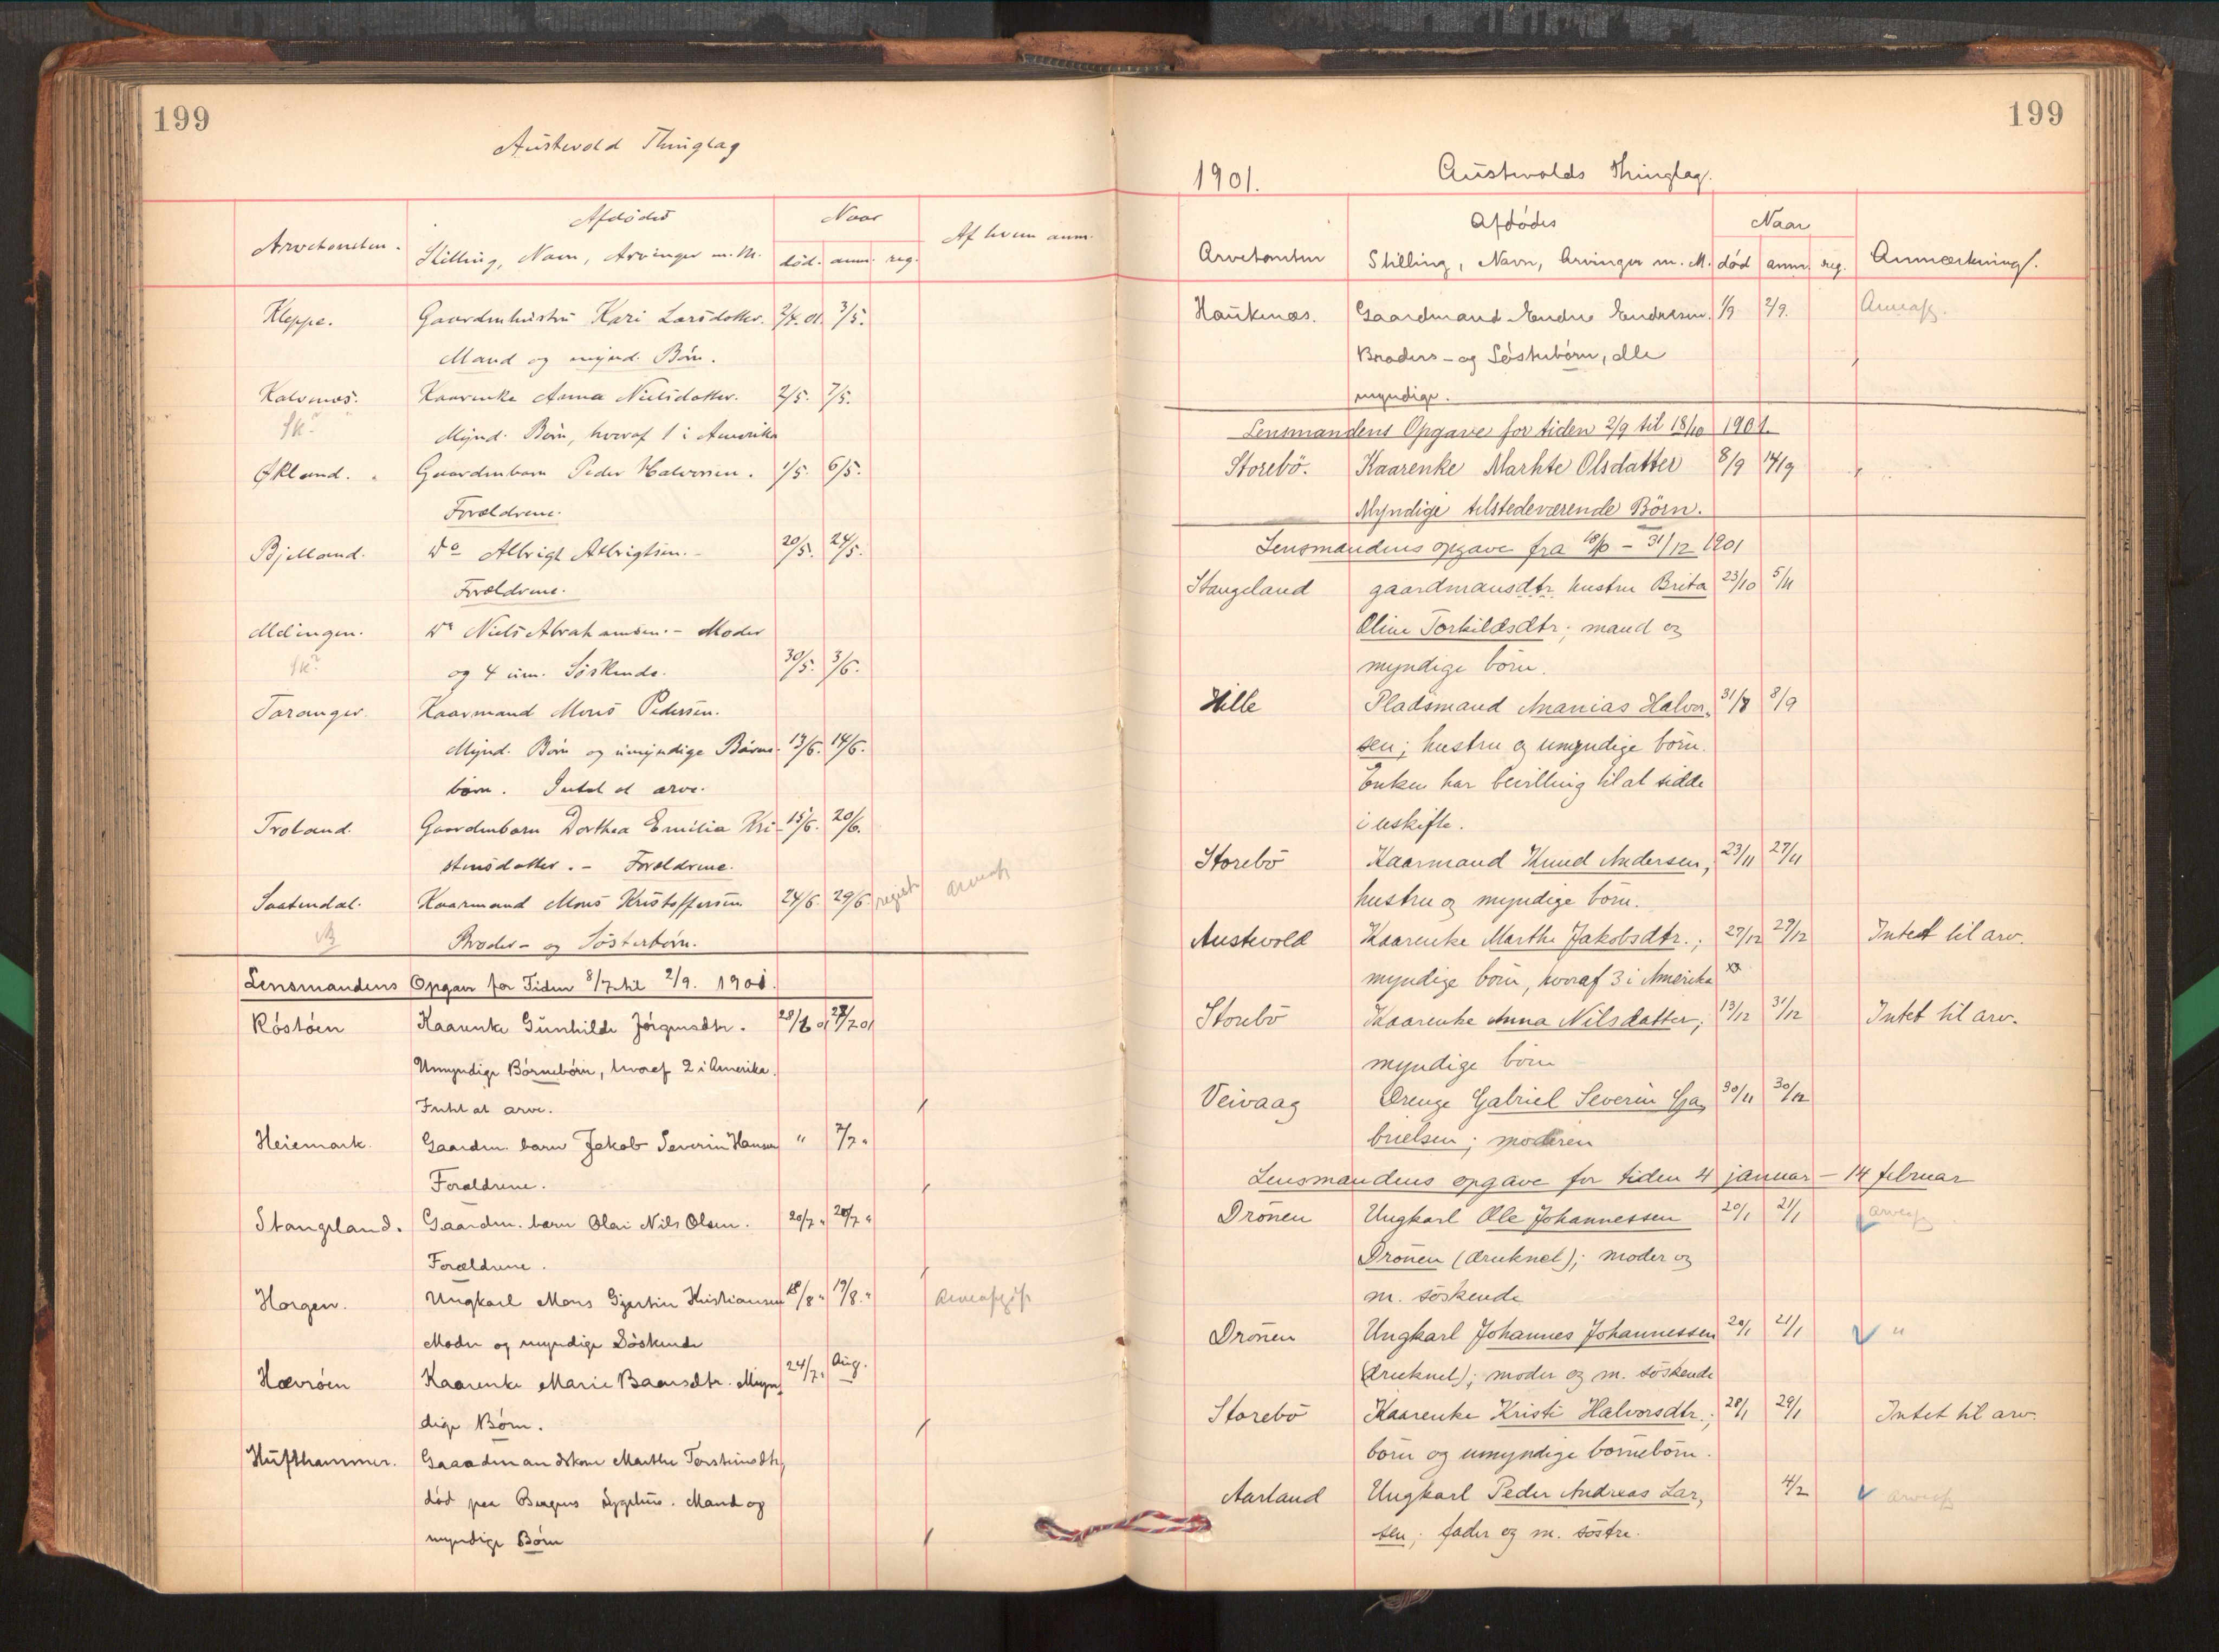 199
Austevold Thinglag
Arvetomten.
Afdødes
Stilling, Navn, Arvinger m. M.
Naar
død. anm. reg.
Af hvem anm.
Kleppe. Gaardmhustru Kari Larsdatter. 2/4.01. 3/5.
Mand og mynd. Børn.
Kalvenes. Kaarenke Anna Nielsdatter. 2/5. 7/5.
Sk? Mynd. Børn, hvoraf 1 i Amerika
Økland. Gaardmbarn Peder Halvorsen. 1/5. 6/5.
Forældrene.
Bjelland. do Albrigt Albrigtsen. 20/5. 24/5.
Forældrene.
Melingen. do Niels Abrahamsen. - Moder
Sk? og 4 um. Søskende. 30/5. 3/6.
Taranger. Kaarmand Mons Pedersen.
Mynd. Børn og umyndige Børne- 13/6. 14/6.
børn. Intet at arve.
Troland. Gaardmbarn Dorthea Emilia Kri- 15/6. 20/6.
stensdatter. - Forældrene.
Saatendal. Kaarmand Mons Kristoffersen 24/6. 29/6. registr arveafg
Broder- og Søsterbørn.
Lensmandens Opgave for Tiden 8/7 til 2/9. 1901.
Röstöen Kaarenke Gunhilde Jörgensdtr. 28/6 01 27/7 01
Umyndige Börnebörn, hvoraf 2 i Amerika.
Intet at arve.
Heiemark. Gaardm. barn Jakob Severin Hansen " 7/7 "
Forældrene.
Stangeland. Gaardm. barn Olai Nils Olsen. 20/7 " 20/7 "
Forældrene.
Horgen. Ungkarl Mons Gjertin Kristiansen 18/8 " 19/8. " Arveafgift
Moder og myndige Söskende
Hævröen Kaarenke Marie Baarsdtr. Myn- 24/7. " Aug.
dige Börn.
Hufthammer. Gaardmandskone Marthe Torsteinsdtr,
död paa Bergens Sygehus. Mand og
myndige Börn
199
1901. Austevolds Thinglag.
Arvetomten
Afdödes
Stilling, Navn, Arvinger m. M.
Naar
död anm. reg.
Anmærkning.
Haukenæs. Gaardmand Endre Endresen. 1/9 2/9. Arveafg.
Broders- og Söstrebörn, alle
myndige.
Lensmandens Opgave for tiden 2/9 til 18/10 1901.
Storebö. Kaarenke Markte Olsdatter 8/9 14/9
Myndige tilstedeværende Börn.
Lensmandens opgave fra 18/10 - 31/12 1901
Stangeland gaardmansdtr. hustru Brita 23/10 5/11
Oline Torkildsdtr.; mand og
myndige börn.
Hille Pladsmand Ananias Halvor- 31/8 8/9
sen; hustru og umyndige börn.
Enken har bevilling til at sidde
i uskifte.
Storebö Kaarmand Knud Andersen, 23/11 27/11
hustru og myndige börn.
Austevold Kaarenke Marthe Jakobsdtr.; 27/12 29/12 Intet til arv.
myndige börn, hvoraf 3 i Amerika
Storebö Kaarenke Anna Nilsdatter; 13/12 31/12 Intet til arv.
myndige börn
Veivaag Drenge Gabriel Severin Ga- 30/11 30/12
brielsen; moderen
Lensmandens opgave for tiden 4 januar - 14 februar
Drönen Ungkarl Ole Johannessen 20/1 21/1 arveafg
Drönen (druknet); moder og
m. söskende
Drönen Ungkarl Johannes Johannessen 20/1 21/1 "
(druknet); moder og m. söskende
Storebö Kaarenke Kristi Halvorsdtr.; 28/1 29/1 Intet til arv.
börn og umyndige börnebörn.
Aarland Ungkarl Peder Andreas Lar- 4/2 arveafg
sen; fader og m. söstre.